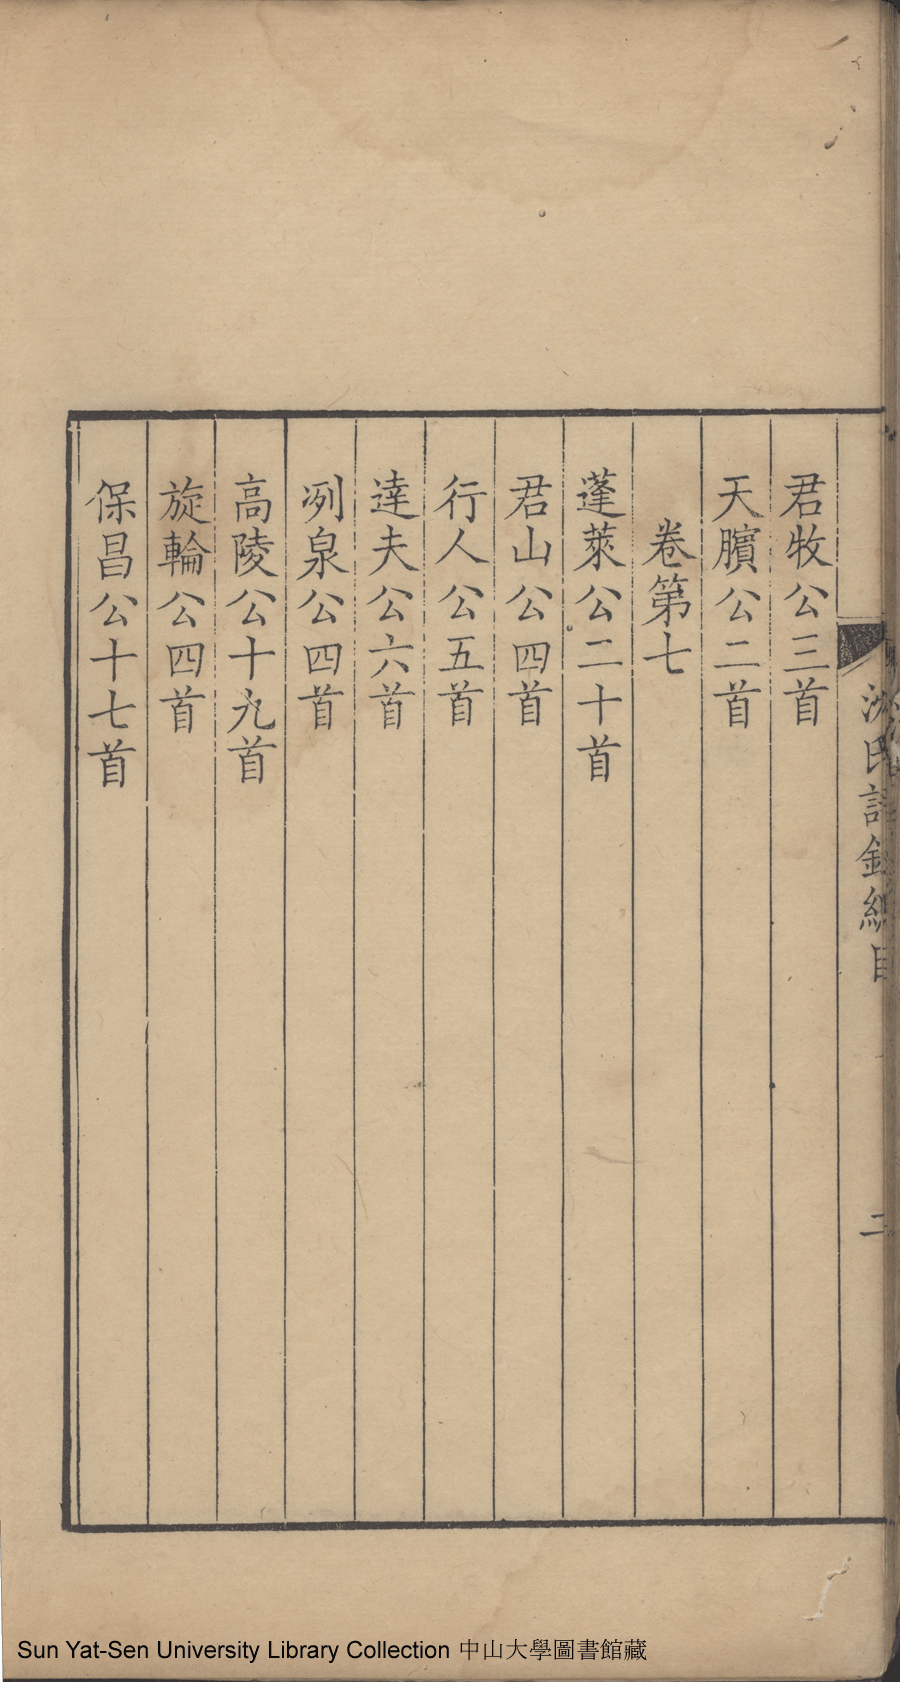 沈氏詩錄總目
二
君牧公三首
天臏公二首
卷第七
蓬萊公二十首
君山公四首
行人公五首
達夫公六首
冽泉公四首
高陵公十九首
旋輪公四首
保昌公十七首
Sun Yat-Sen University Library Collection 中山大學圖書館藏